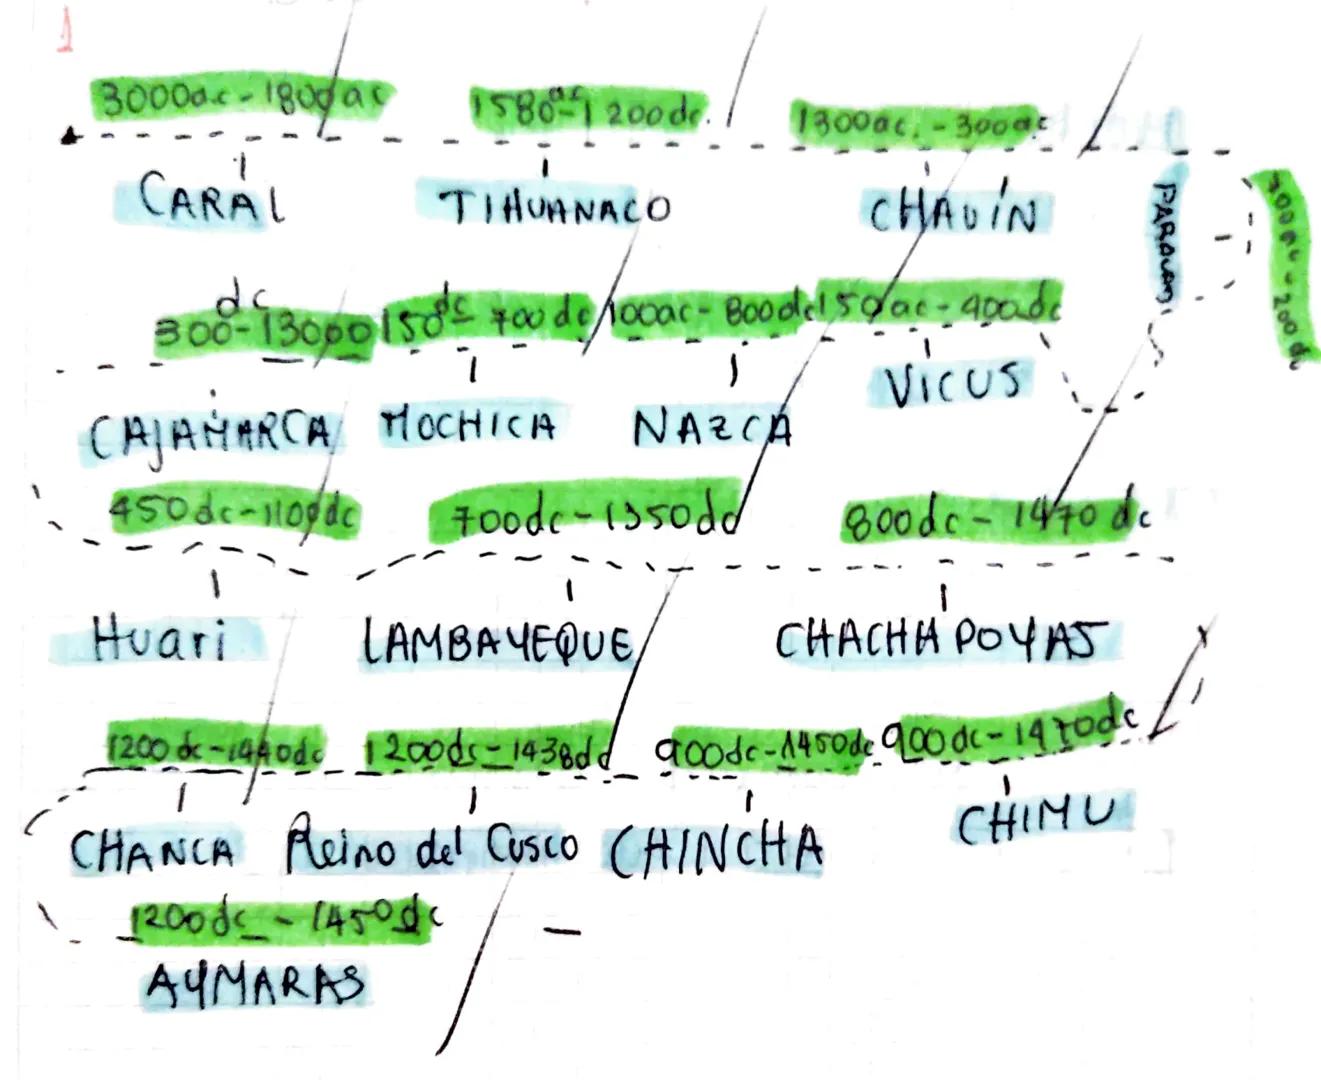 1
3000ac - 1800ac 1580ac - 1200dc. 1300ac. - 300ac
CARAL TIHUANACO CHAVÍN PARACAS 700ac - 200dc
dc dc
300 - 13000 150 - 700dc 100ac - 800dc 150ac - 400dc
CAJAMARCA MOCHICA NAZCA VICUS
450dc - 1100dc 700dc - 1350dc 800dc - 1470dc
Huari LAMBAYEQUE CHACHAPOYAS
1200dc - 1440dc 1200dc - 1438dc 900dc - 1450dc 900dc - 1470dc
CHANCA Reino del Cusco CHINCHA CHIMU
1200dc - 1450dc
AYMARAS